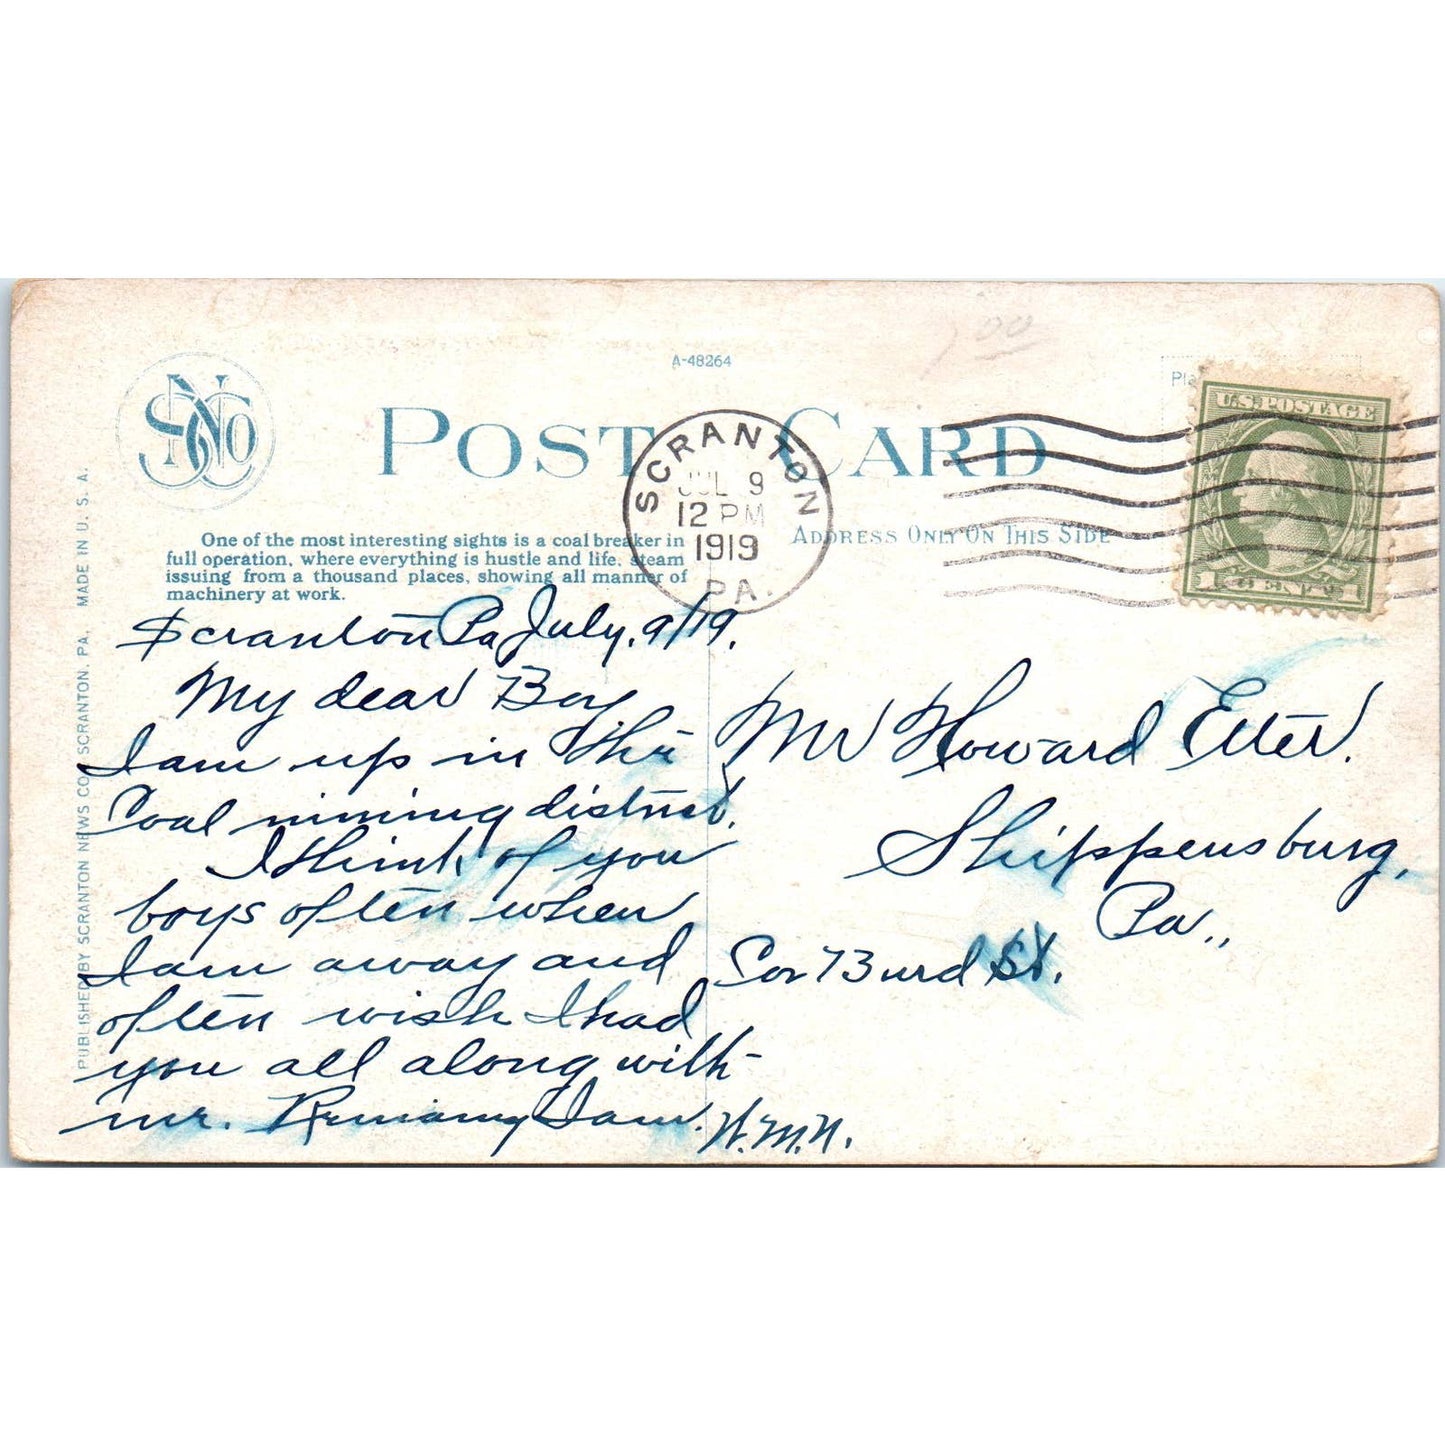 A-48264
1.00
SNCo
POST CARD
Pla
U.S. POSTAGE
1 CENT 1
SCRANTON
JUL 9
12 PM
1919
PA.
ADDRESS ONLY ON THIS SIDE
One of the most interesting sights is a coal breaker in
full operation, where everything is hustle and life, steam
issuing from a thousand places, showing all manner of
machinery at work.
PUBLISHED BY SCRANTON NEWS CO. SCRANTON, PA. MADE IN U. S. A.
Scranton Pa July, 9/19.
My dear Boy
I am up in the
Coal mining district.
I think of you
boys often when
I am away and
often wish I had
you all along with
me. I am.
W.M.N.
Mr Howard Etter.
Shippensburg,
Pa.,
Cor Burd St.